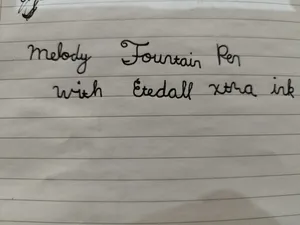 Melody Fountain Pen
with Etedall xtra ink